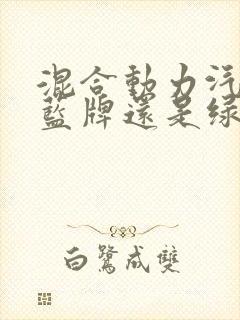 混合動力汽
藍牌還是綠
白鷺成雙